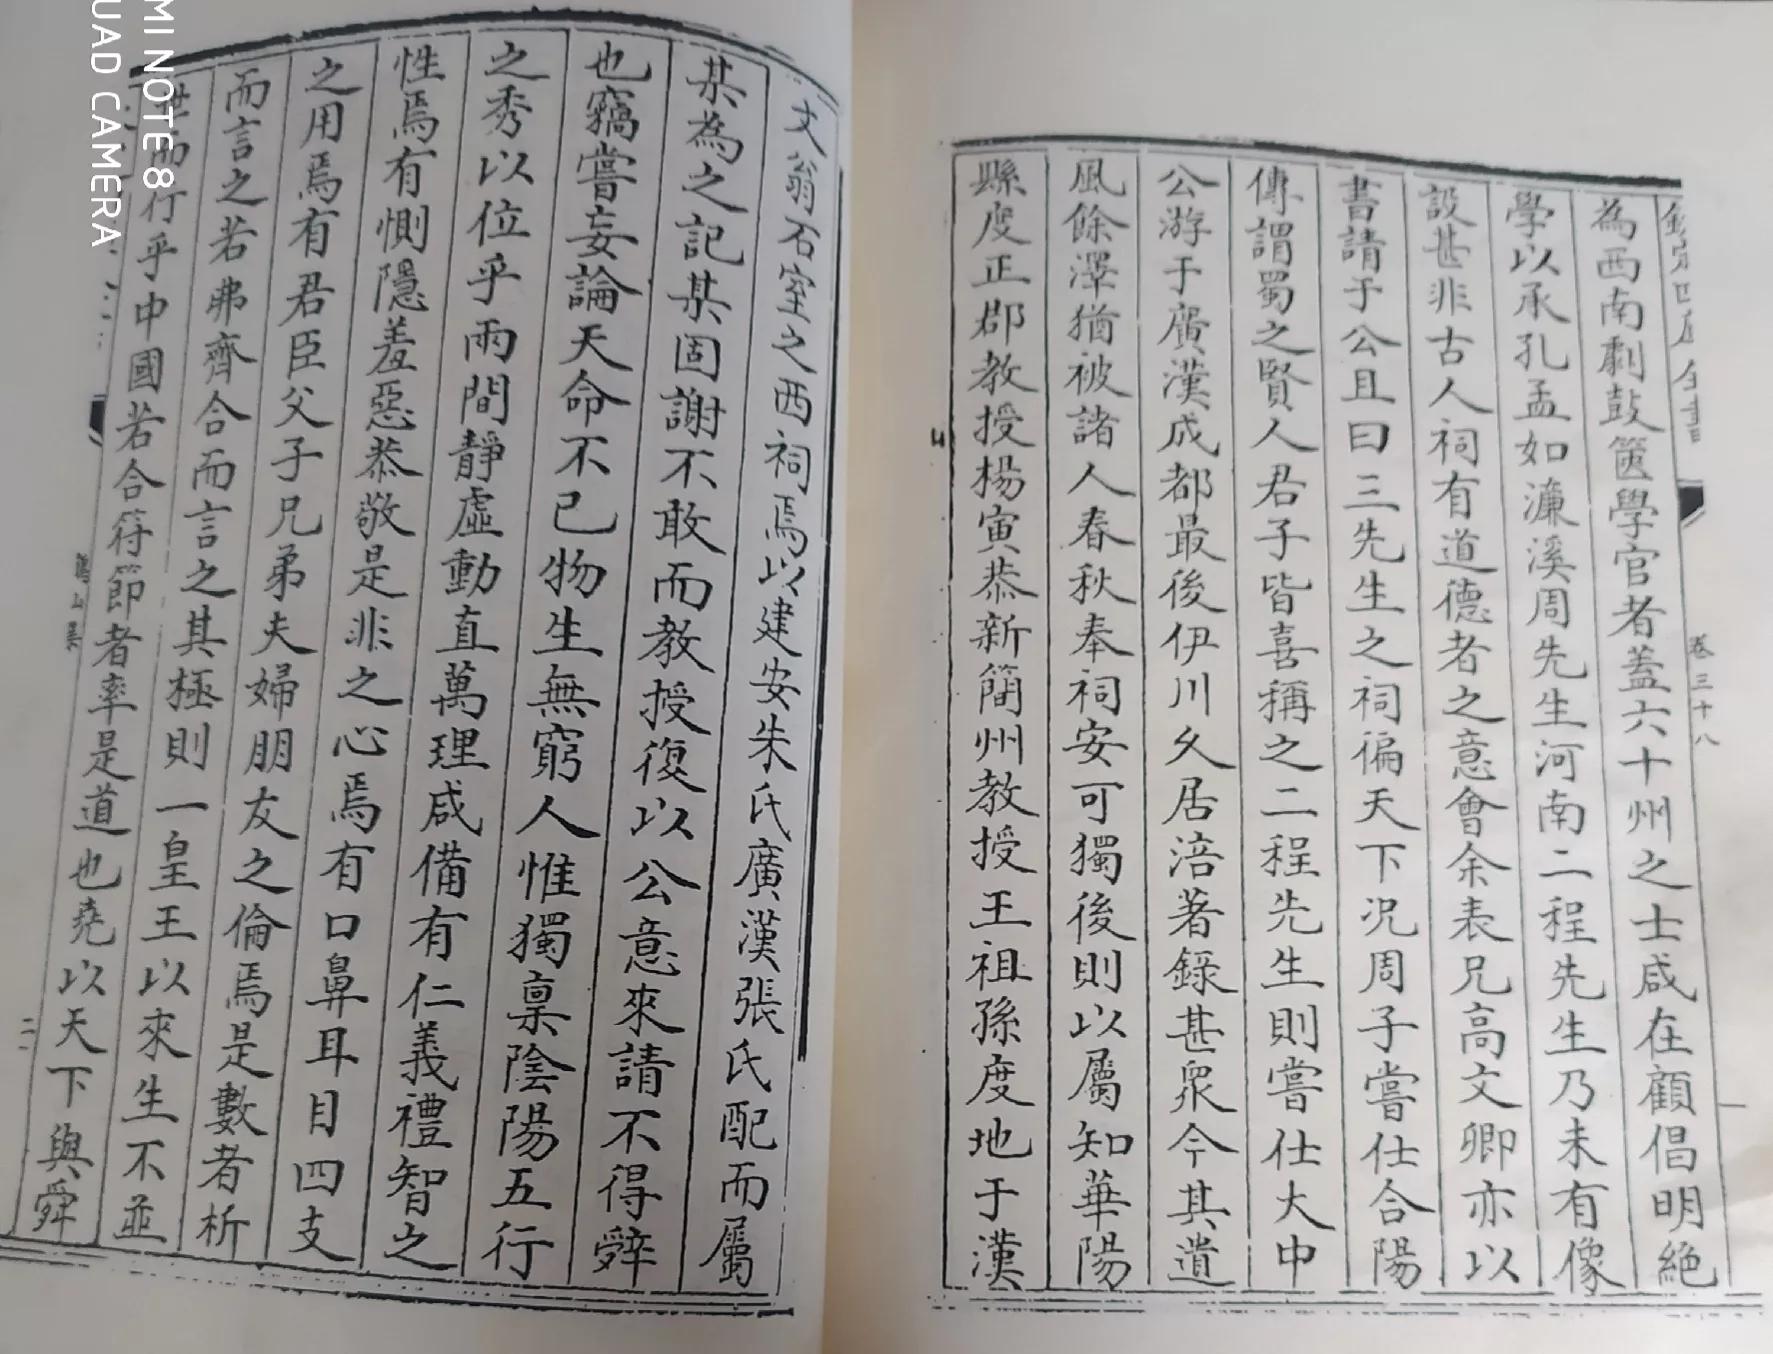 欽定四庫全書
卷三十八
一
為西南劇鼓篋學官者蓋六十州之士咸在顧倡明絕
學以承孔孟如濂溪周先生河南二程先生乃未有像
設甚非古人祠有道德者之意會余表兄高文卿亦以
書請于公且曰三先生之祠徧天下況周子嘗仕合陽
傳謂蜀之賢人君子皆喜稱之二程先生則嘗仕大中
公游于廣漢成都最後伊川久居涪著錄甚眾今其遺
風餘澤猶被諸人春秋奉祠安可獨後則以屬知華陽
縣度正郡教授楊寅恭新簡州教授王祖孫度地于漢
文翁石室之西祠焉以建安朱氏廣漢張氏配而屬
某為之記某固謝不敢而教授復以公意來請不得辤
也竊嘗妄論天命不已物生無窮人惟獨稟陰陽五行
之秀以位乎兩間靜虛動直萬理咸備有仁義禮智之
性焉有惻隱羞惡恭敬是非之心焉有口鼻耳目四支
之用焉有君臣父子兄弟夫婦朋友之倫焉是數者析
而言之若弗齊合而言之其極則一皇王以來生不並
世而行乎中國若合符節者率是道也堯以天下與舜
鶴山集
二
MI NOTE 8
UAD CAMERA